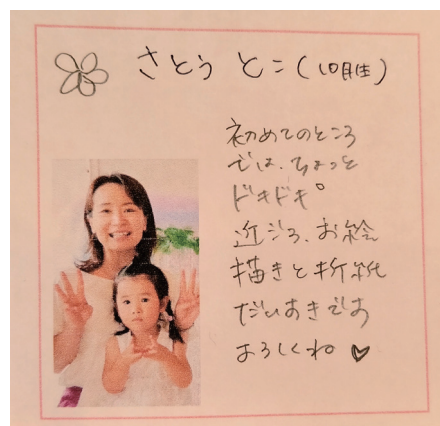 さとう とこ(10月生)
初めてのところ
では、ちょっと
ドキドキ。
近ごろ、お絵
描きと折紙
だいすきです
よろしくね♥